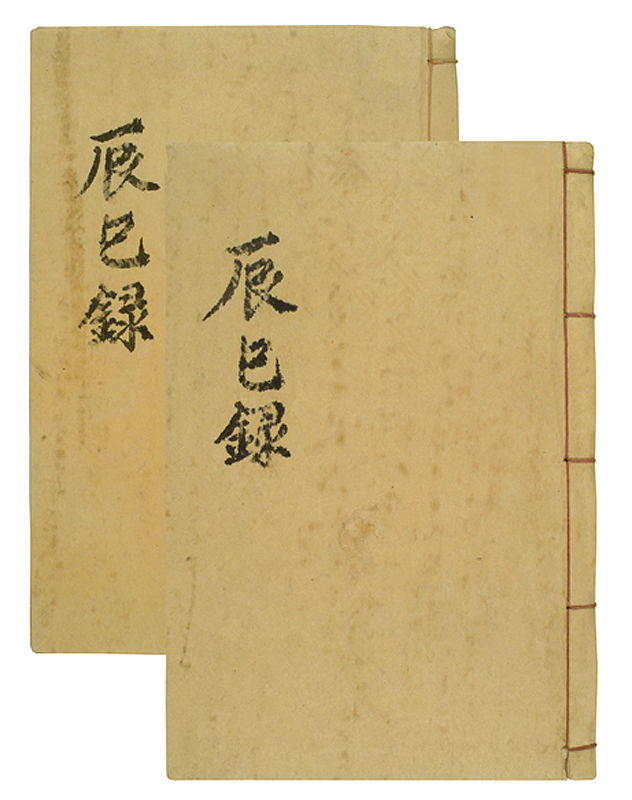 辰巳錄
辰巳錄